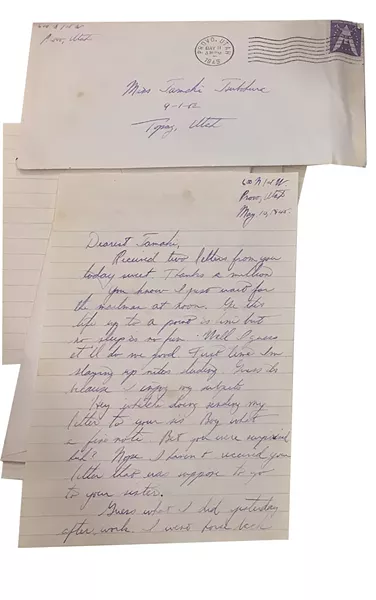 600 N 1st W.
Provo, Utah
PROVO, UTAH
MAY 11
1945
Miss Tamaki Tsubokura
9-1-
Topaz, Utah
600 N 1st W.
Provo, Utah
May 10, 1945.
Dearest Tamaki,
Received two letters from you
today sweet Thanks a million
you know I just wait for
the mailman at noon. Ge this
life up to a point is fun but
no sleep is no fun. Well I guess
it'll do me good First time I'm
staying up nites studing. Guess its
because I enjoy my subjects
Hey which doing sending my
letter to your sis Boy what
a fine note. Bet you were surprised
huh? Nope I haven't received your
letter that was suppose to go
to your sister.
Guess what I did yesterday
after work I went horse back